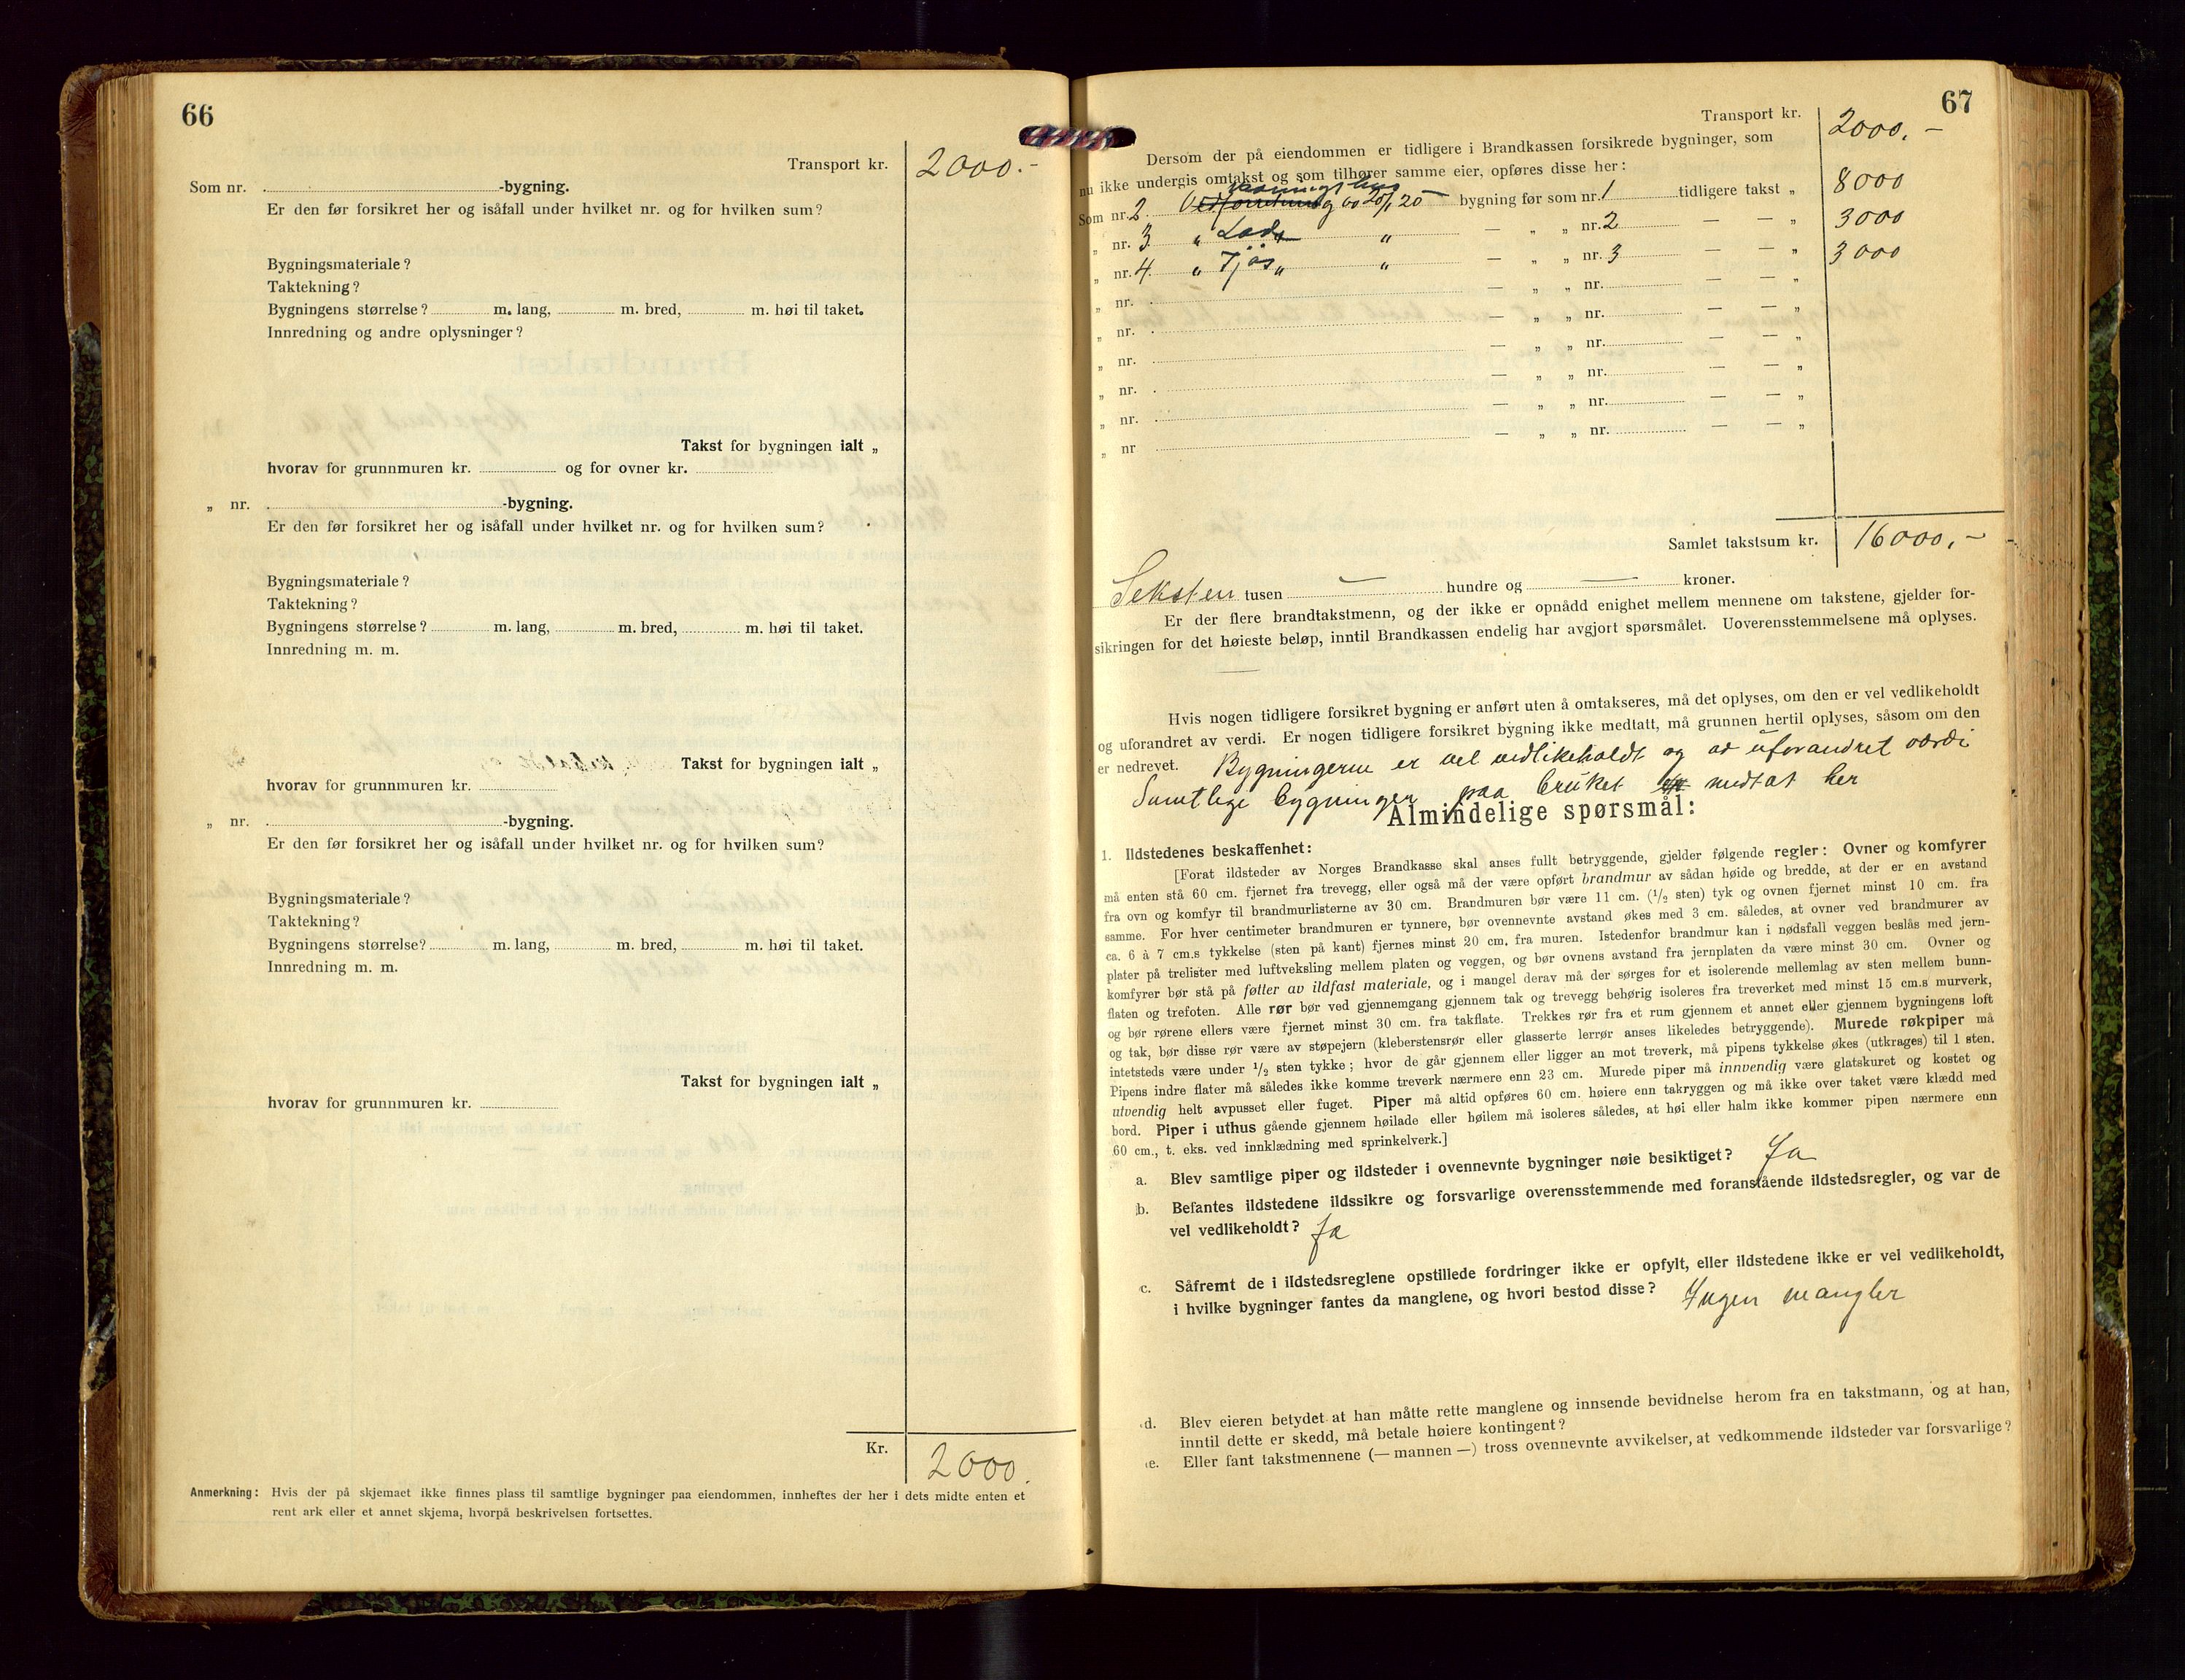 66
Transport kr. 2000.-
Som nr. -bygning.
Er den før forsikret her og isåfall under hvilket nr. og for hvilken sum?
Bygningsmateriale?
Taktekning?
Bygningens størrelse? m. lang, m. bred, m. høi til taket.
Innredning og andre oplysninger?
Takst for bygningen ialt „
hvorav for grunnmuren kr. og for ovner kr.
„ nr. -bygning.
Er den før forsikret her og isåfall under hvilket nr. og for hvilken sum?
Bygningsmateriale?
Taktekning?
Bygningens størrelse? m. lang, m. bred, m. høi til taket.
Innredning m. m.
Takst for bygningen ialt „
hvorav for grunnmuren kr.
„ nr. -bygning.
Er den før forsikret her og isåfall under hvilket nr. og for hvilken sum?
Bygningsmateriale?
Taktekning?
Bygningens størrelse? m. lang, m. bred, m. høi til taket.
Innredning m. m.
Takst for bygningen ialt „
hvorav for grunnmuren kr.
Kr. 2000.
Anmerkning: Hvis der på skjemaet ikke finnes plass til samtlige bygninger paa eiendommen, innheftes der her i dets midte enten et
rent ark eller et annet skjema, hvorpå beskrivelsen fortsettes.
67
Transport kr. 2000.-
Dersom der på eiendommen er tidligere i Brandkassen forsikrede bygninger, som
nu ikke undergis omtakst og som tilhører samme eier, opføres disse her:
Som nr. 2. 20/1 20 — bygning før som nr. 1 tidligere takst „ 8000
„ nr. 3 „ Lade „ — „ „ nr. 2 — — „ 3000
„ nr. 4. „ Fjøs „ „ — „ „ nr. 3 — — „ 3000
„ nr. — „ „ nr. — — „
„ nr. — „ „ nr. — — „
„ nr. — „ „ nr. — — „
„ nr. — „ „ nr. — — „
„ nr. — „ „ nr. — — „
„ nr — „ „ nr. — — „
Samlet takstsum kr. 16000,-
Seksten tusen — hundre og — kroner.
Er der flere brandtakstmenn, og der ikke er opnådd enighet mellem mennene om takstene, gjelder for-
sikringen for det høieste beløp, inntil Brandkassen endelig har avgjort spørsmålet. Uoverensstemmelsene må oplyses.
Hvis nogen tidligere forsikret bygning er anført uten å omtakseres, må det oplyses, om den er vel vedlikeholdt
og uforandret av verdi. Er nogen tidligere forsikret bygning ikke medtatt, må grunnen hertil oplyses, såsom om den
er nedrevet. Bygningerne er vel vedlikeholdt og av uforandret værdi
Samtlige bygninger paa bruket medtat her
Almindelige spørsmål:
1. Ildstedenes beskaffenhet:
[Forat ildsteder av Norges Brandkasse skal anses fullt betryggende, gjelder følgende regler: Ovner og komfyrer
må enten stå 60 cm. fjernet fra trevegg, eller også må der være opført brandmur av sådan høide og bredde, at der er en avstand
fra ovn og komfyr til brandmurlisterne av 30 cm. Brandmuren bør være 11 cm. (1/2 sten) tyk og ovnen fjernet minst 10 cm. fra
samme. For hver centimeter brandmuren er tynnere, bør ovennevnte avstand økes med 3 cm. således, at ovner ved brandmurer av
ca. 6 à 7 cm.s tykkelse (sten på kant) fjernes minst 20 cm. fra muren. Istedenfor brandmur kan i nødsfall veggen beslås med jern-
plater på trelister med luftveksling mellem platen og veggen, og bør ovnens avstand fra jernplaten da være minst 30 cm. Ovner og
komfyrer bør stå på føtter av ildfast materiale, og i mangel derav må der sørges for et isolerende mellemlag av sten mellem bunn-
flaten og trefoten. Alle rør bør ved gjennemgang gjennem tak og trevegg behørig isoleres fra treverket med minst 15 cm.s murverk,
og bør rørene ellers være fjernet minst 30 cm. fra takflate. Trekkes rør fra et rum gjennem et annet eller gjennem bygningens loft
og tak, bør disse rør være av støpejern (kleberstensrør eller glasserte lerrør anses likeledes betryggende). Murede røkpiper må
intetsteds være under 1/2 sten tykke; hvor de går gjennem eller ligger an mot treverk, må pipens tykkelse økes (utkrages) til 1 sten.
Pipens indre flater må således ikke komme treverk nærmere enn 23 cm. Murede piper må innvendig være glatskuret og kostet og
utvendig helt avpusset eller fuget. Piper må altid opføres 60 cm. høiere enn takryggen og må ikke over taket være klædd med
bord. Piper i uthus gående gjennem høilade eller høilem må isoleres således, at høi eller halm ikke kommer pipen nærmere enn
60 cm., t. eks. ved innklædning med sprinkelverk.]
a. Blev samtlige piper og ildsteder i ovennevnte bygninger nøie besiktiget? Ja
b. Befantes ildstedene ildssikre og forsvarlige overensstemmende med foranstående ildstedsregler, og var de
vel vedlikeholdt? Ja
c. Såfremt de i ildstedsreglene opstillede fordringer ikke er opfylt, eller ildstedene ikke er vel vedlikeholdt,
i hvilke bygninger fantes da manglene, og hvori bestod disse? Ingen mangler
d. Blev eieren betydet at han måtte rette manglene og innsende bevidnelse herom fra en takstmann, og at han,
inntil dette er skedd, må betale høiere kontingent?
e. Eller fant takstmennene (— mannen —) tross ovennevnte avvikelser, at vedkommende ildsteder var forsvarlige?